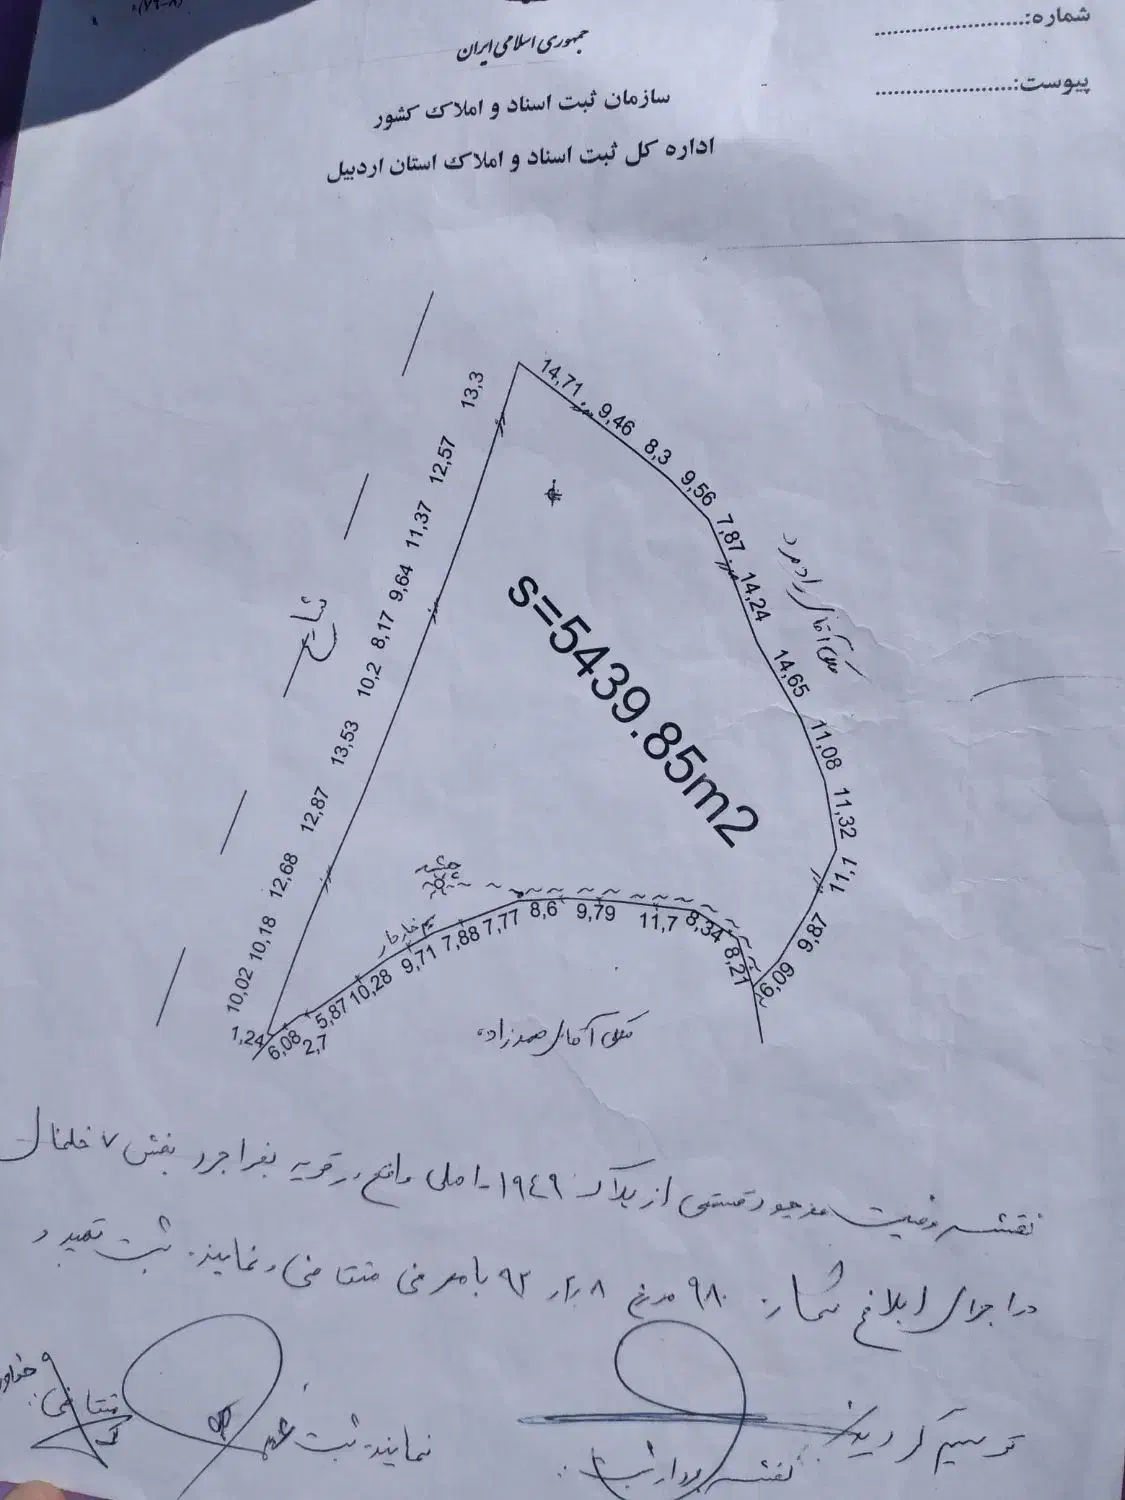 شماره:........................
پیوست:......................
جمهوری اسلامی ایران
سازمان ثبت اسناد و املاک کشور
اداره کل ثبت اسناد و املاک استان اردبیل
14,71
9,46
8,3
9,56
7,87
14,24
14,65
11,08
11,32
11,1
9,87
6,09
ملکی آقای رادمرد
13,3
12,57
11,37
9,64
8,17
10,2
13,53
12,87
12,68
10,18
10,02
شارع
s=5439.85m2
سیم خاردار
1,24
6,08
2,7
5,87
10,28
9,71
7,88
7,77
8,6
9,79
11,7
8,34
8,21
ملکی آقای صمدزاده
نقشه وضعیت موجود قسمتی از پلاک ۱۹۴۹- اصلی واقع در قریه بخش ۷ خلخال
در اجرای ابلاغ شماره ۹۸۰ مورخ با معرفی متقاضی و نماینده ثبت تهیه و
ترسیم گردید
نقشه بردار ثبت:
نماینده ثبت:
متقاضی: